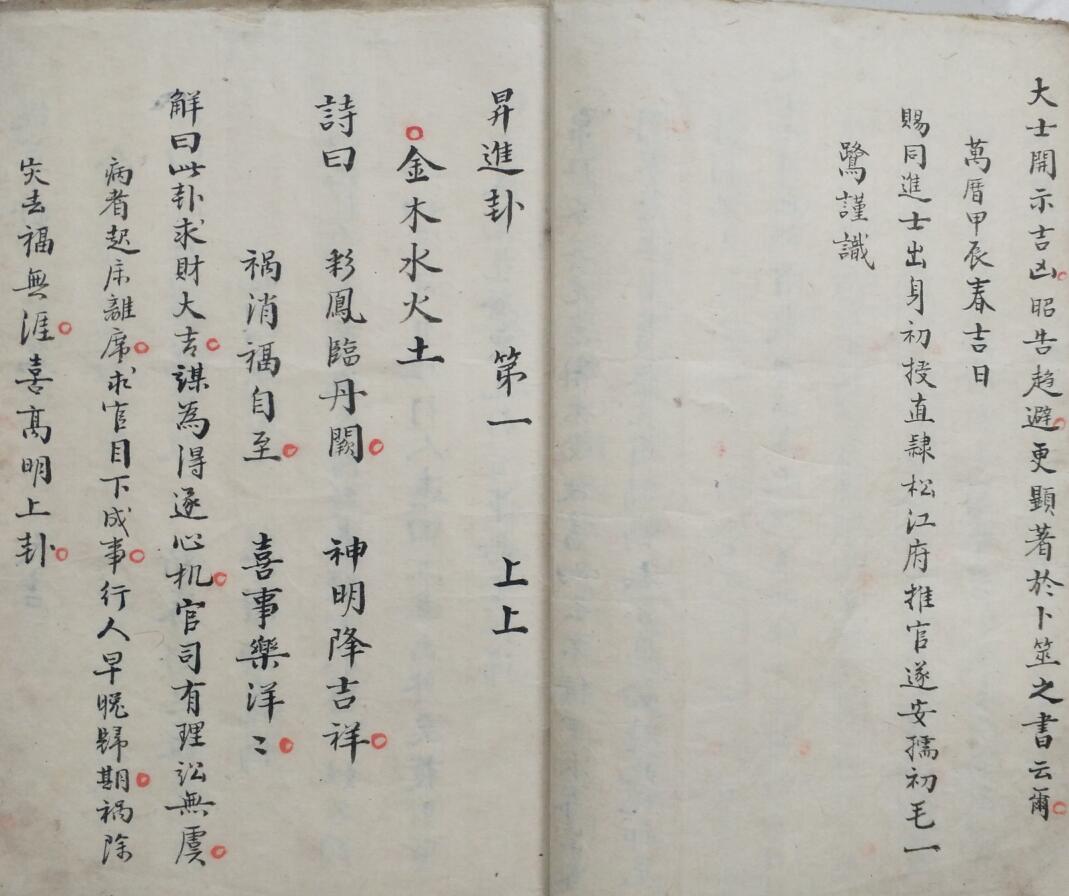 大士開示吉凶昭告趋避更顯著於卜筮之書云爾
萬曆甲辰春吉日
賜同進士出身初授直隷松江府推官遂安孺初毛一
鷺謹識
昇進卦 第一 上上
金木水火土
詩曰 彩鳳臨丹闕 神明降吉祥
禍消福自至 喜事樂洋〻
解曰此卦求財大吉謀為得遂心机官司有理訟無虞
病者起床離席求官目下成事行人早晚歸期禍除
災去福無涯喜髙明上卦